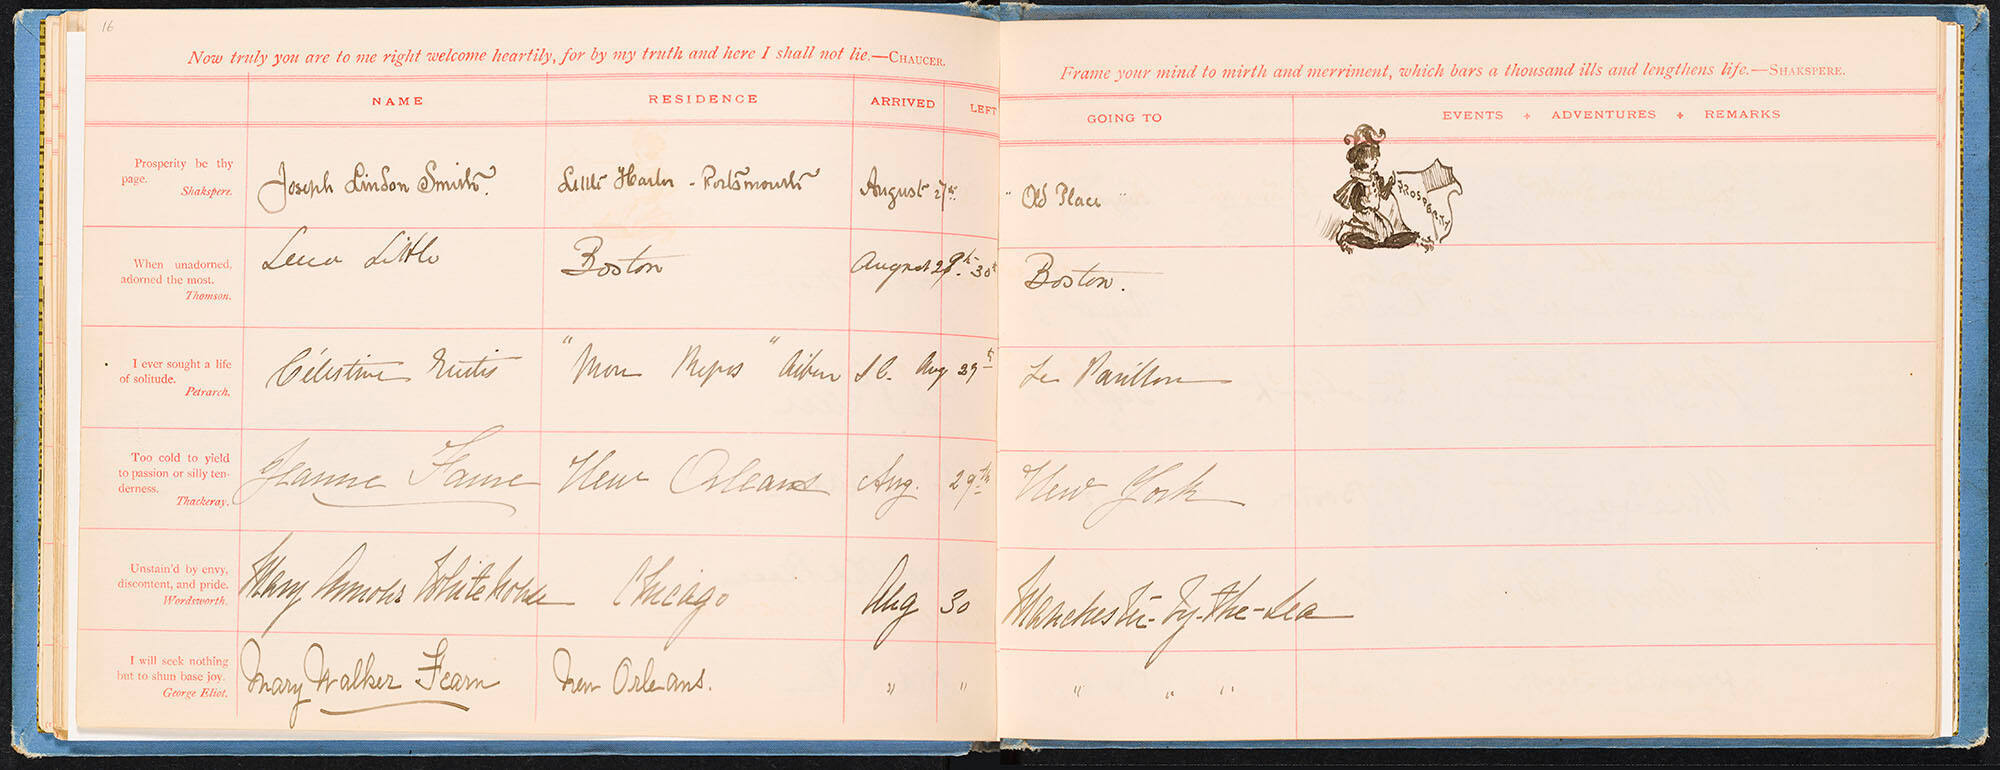 16
Now truly you are to me right welcome heartily, for by my truth and here I shall not lie.—CHAUCER.
NAME RESIDENCE ARRIVED LEFT
Prosperity be thy
page.
Shakspere.
Joseph Lindon Smith. Little Harbor - Portsmouth August 27th
When unadorned,
adorned the most.
Thomson.
Lena Little Boston August 29th 30th
I ever sought a life
of solitude.
Petrarch.
Célestine Eustis "Mon Repos" Aiken S C. Aug 29th
Too cold to yield
to passion or silly ten-
derness.
Thackeray.
Jeanne Faure New Orleans Aug. 29th
Unstain'd by envy,
discontent, and pride.
Wordsworth.
Mary Armour Whitehouse Chicago Aug 30
I will seek nothing
but to shun base joy.
George Eliot.
Mary Walker Fearn New Orleans. " "
Frame your mind to mirth and merriment, which bars a thousand ills and lengthens life.—SHAKSPERE.
GOING TO EVENTS + ADVENTURES + REMARKS
"Old Place"
PROSPERITY
Boston.
Le Pavillon
New York
Manchester-by-the-Sea
" " "